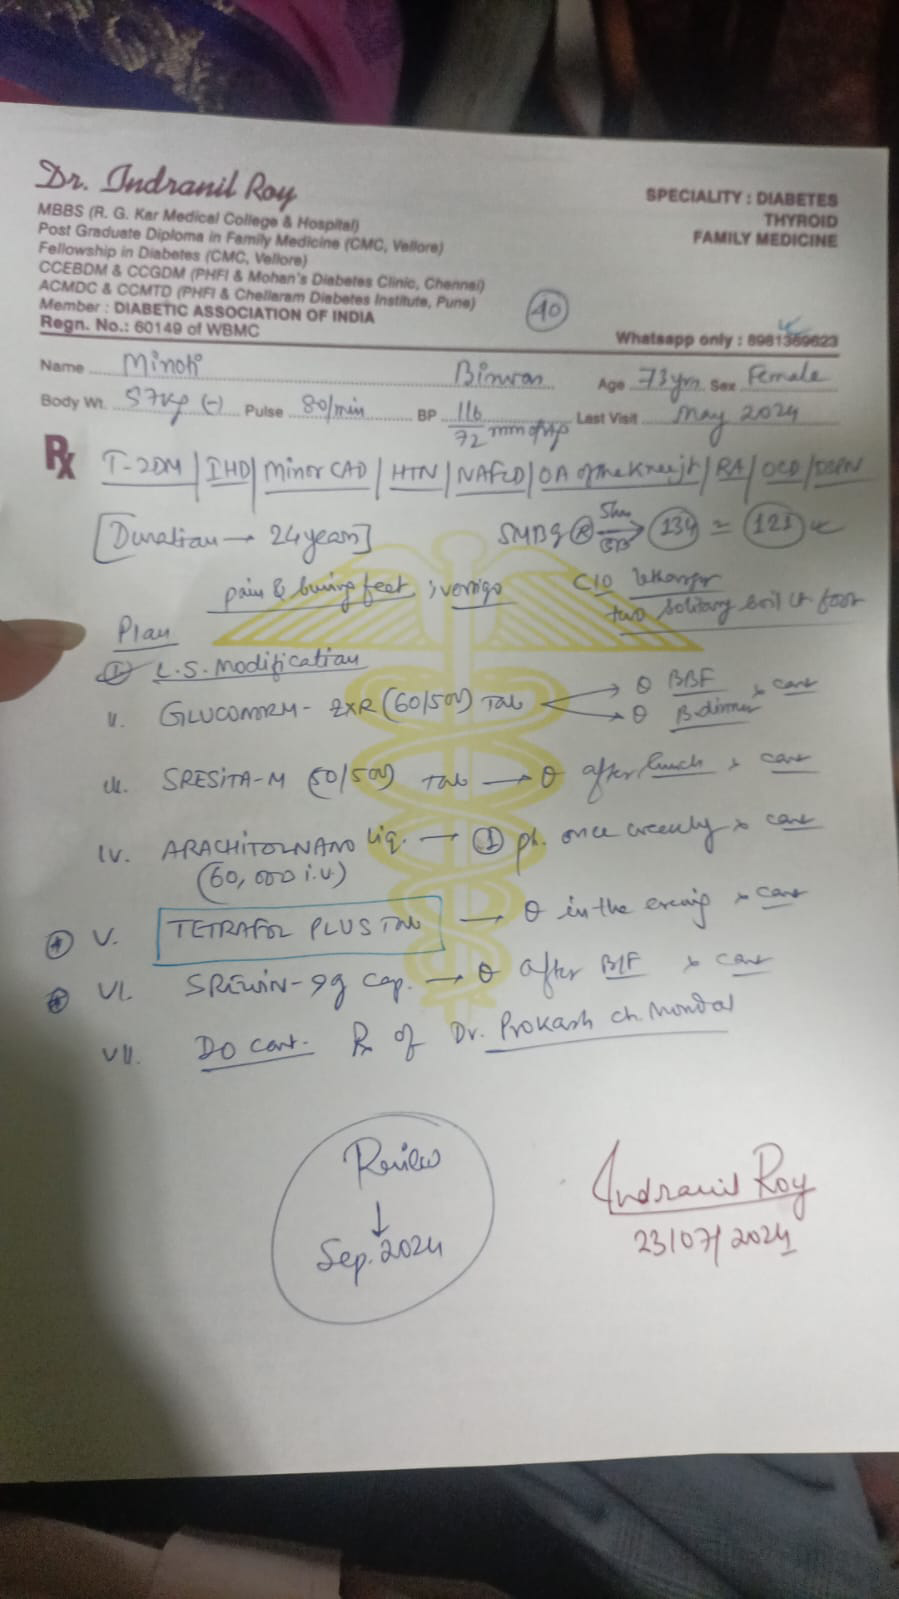 Dr. Indranil Roy
MBBS (R. G. Kar Medical College & Hospital)
Post Graduate Diploma in Family Medicine (CMC, Vellore)
Fellowship in Diabetes (CMC, Vellore)
CCEBDM & CCGDM (PHFI & Mohan's Diabetes Clinic, Chennai)
ACMDC & CCMTD (PHFI & Chellaram Diabetes Institute, Pune)
Member : DIABETIC ASSOCIATION OF INDIA
Regn. No.: 60149 of WBMC
SPECIALITY : DIABETES
THYROID
FAMILY MEDICINE
Whatsapp only : 8981369623
Name Minoti Age 73yrs Sex Female
Body Wt. 57kg (-) Pulse 80/min BP 116/72 mm of Hg Last Visit May 2024
Rx T-2DM | IHD | Minor CAD | HTN | NAFLD | OA of the Knee jt | RA | OCD |
[Duration → 24 years] SMBG 134 121
pain & burning feet ; vertigo C/O
two solitary boil foot
Plan
L.S. Modification
II. GLUCONORM- (60/500) Tab BBF cont
B-dinner
III. SRESITA-M (50/500) Tab → after lunch x cont
IV. ARACHITOL NANO liq. → 1 ph. once weekly x cont
(60,000 i.u.)
V. TETRAFOL PLUS Tab → in the evening x cont
VI. SREWIN-9g cap. → after B/F x cont
VII. DO cont. Rx of Dr. Prokash ch. Mondal
Review
↓
Sep. 2024
Indranil Roy
23/07/2024